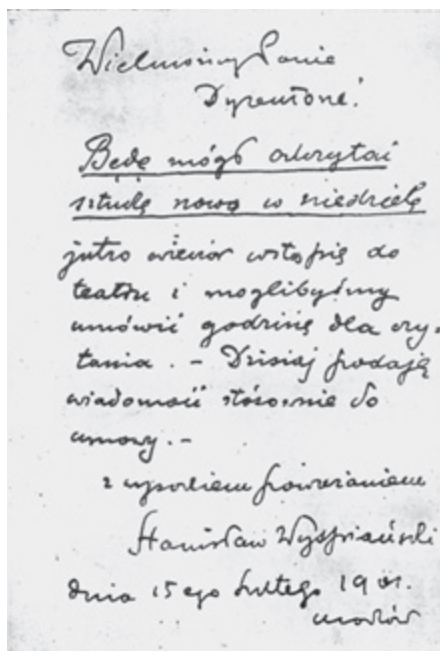 Wielmożny Panie
Dyrektorze!
Będę mógł odczytać
sztukę nową w niedzielę
jutro wieczór wstąpię do
teatru i moglibyśmy
umówić godzinę dla czy-
tania. - Dzisiaj podaję
wiadomość stósownie do
umowy. -
z wysokiem poważaniem
Stanisław Wyspiański
dnia 15ego Lutego 1901.
Kraków